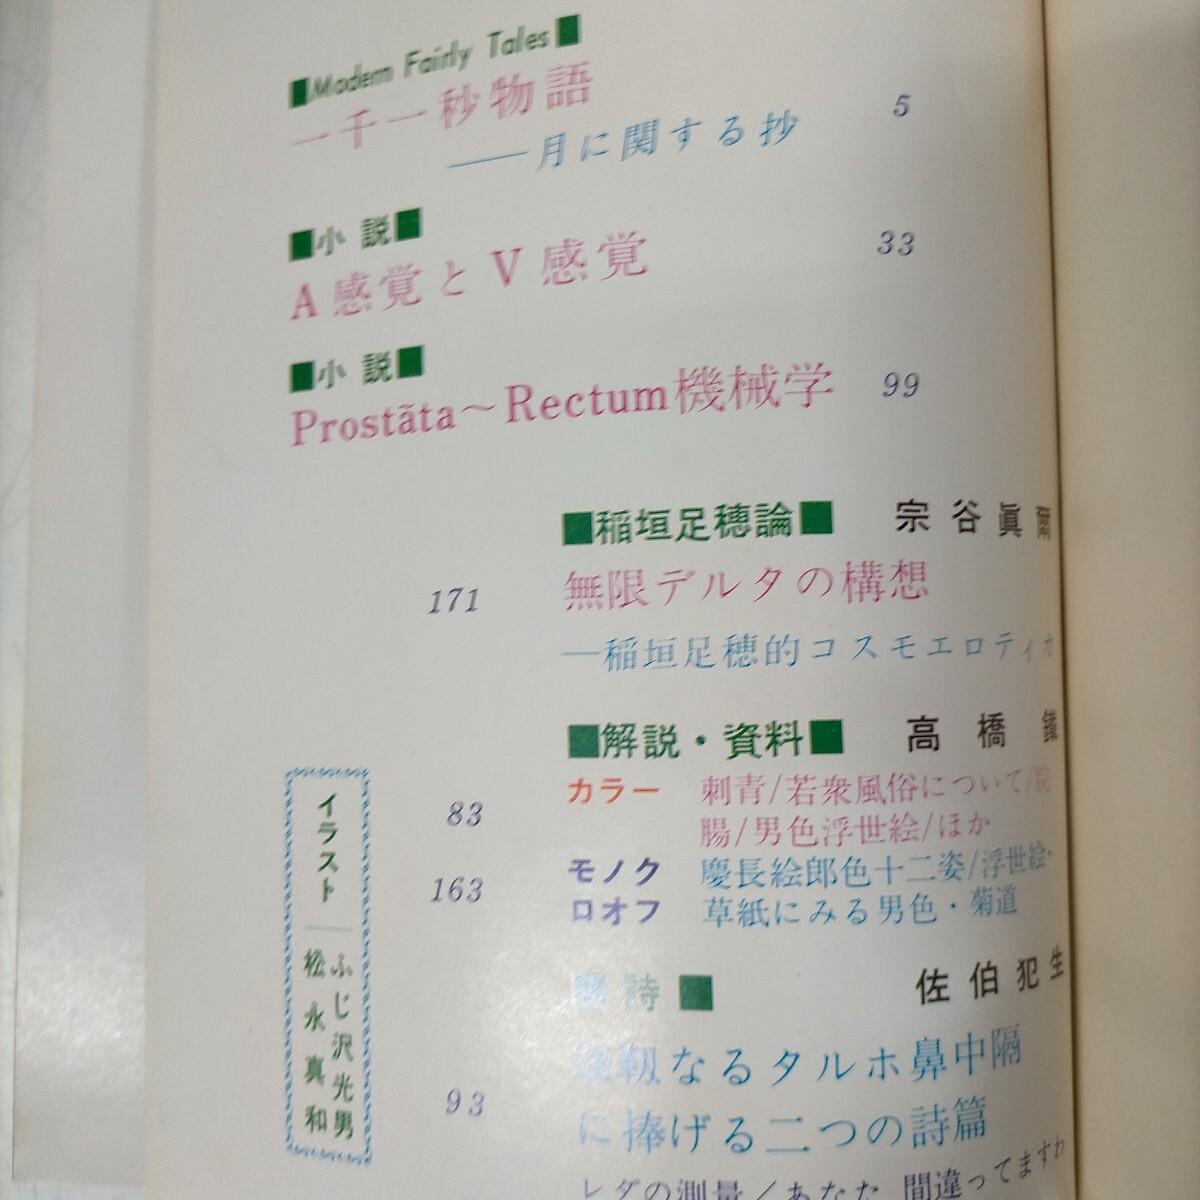 ■Modern Fairly Tales■
一千一秒物語
――月に関する抄 5
■小説■
A感覚とV感覚 33
■小説■
Prostāta～Rectum機械学 99
■稲垣足穂論■ 宗谷眞爾
171 無限デルタの構想
―稲垣足穂的コスモエロティカ
■解説・資料■ 高橋鐵
83 カラー 刺青/若衆風俗について/
腸/男色浮世絵/ほか
163 モノク 慶長絵郎色十二姿/浮世絵・
ロオフ 草紙にみる男色・菊道
■詩■ 佐伯犯生
靱なるタルホ鼻中隔
93 に捧げる二つの詩篇
レダの測量/あなた 間違ってますわ
イラスト―
ふじ沢光男
松永真和